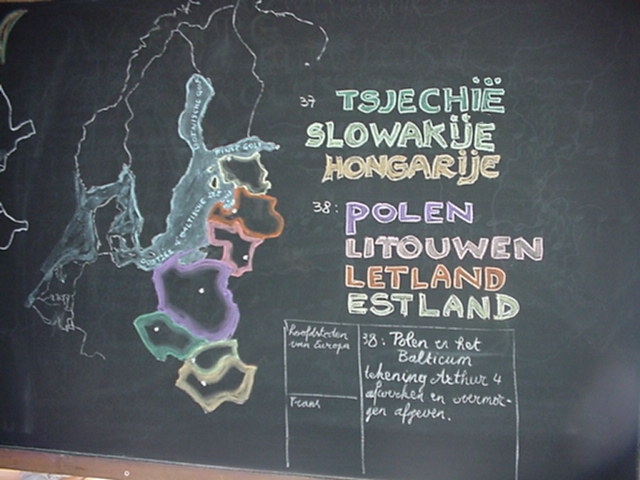 37 TSJECHIË
SLOWAKIJE
HONGARIJE
38: POLEN
LITOUWEN
LETLAND
ESTLAND
hoofdsteden
van Europa
Frans
38: Polen en het
Balticum
tekening Arthur 4
afwerken en overmor-
gen afgeven.